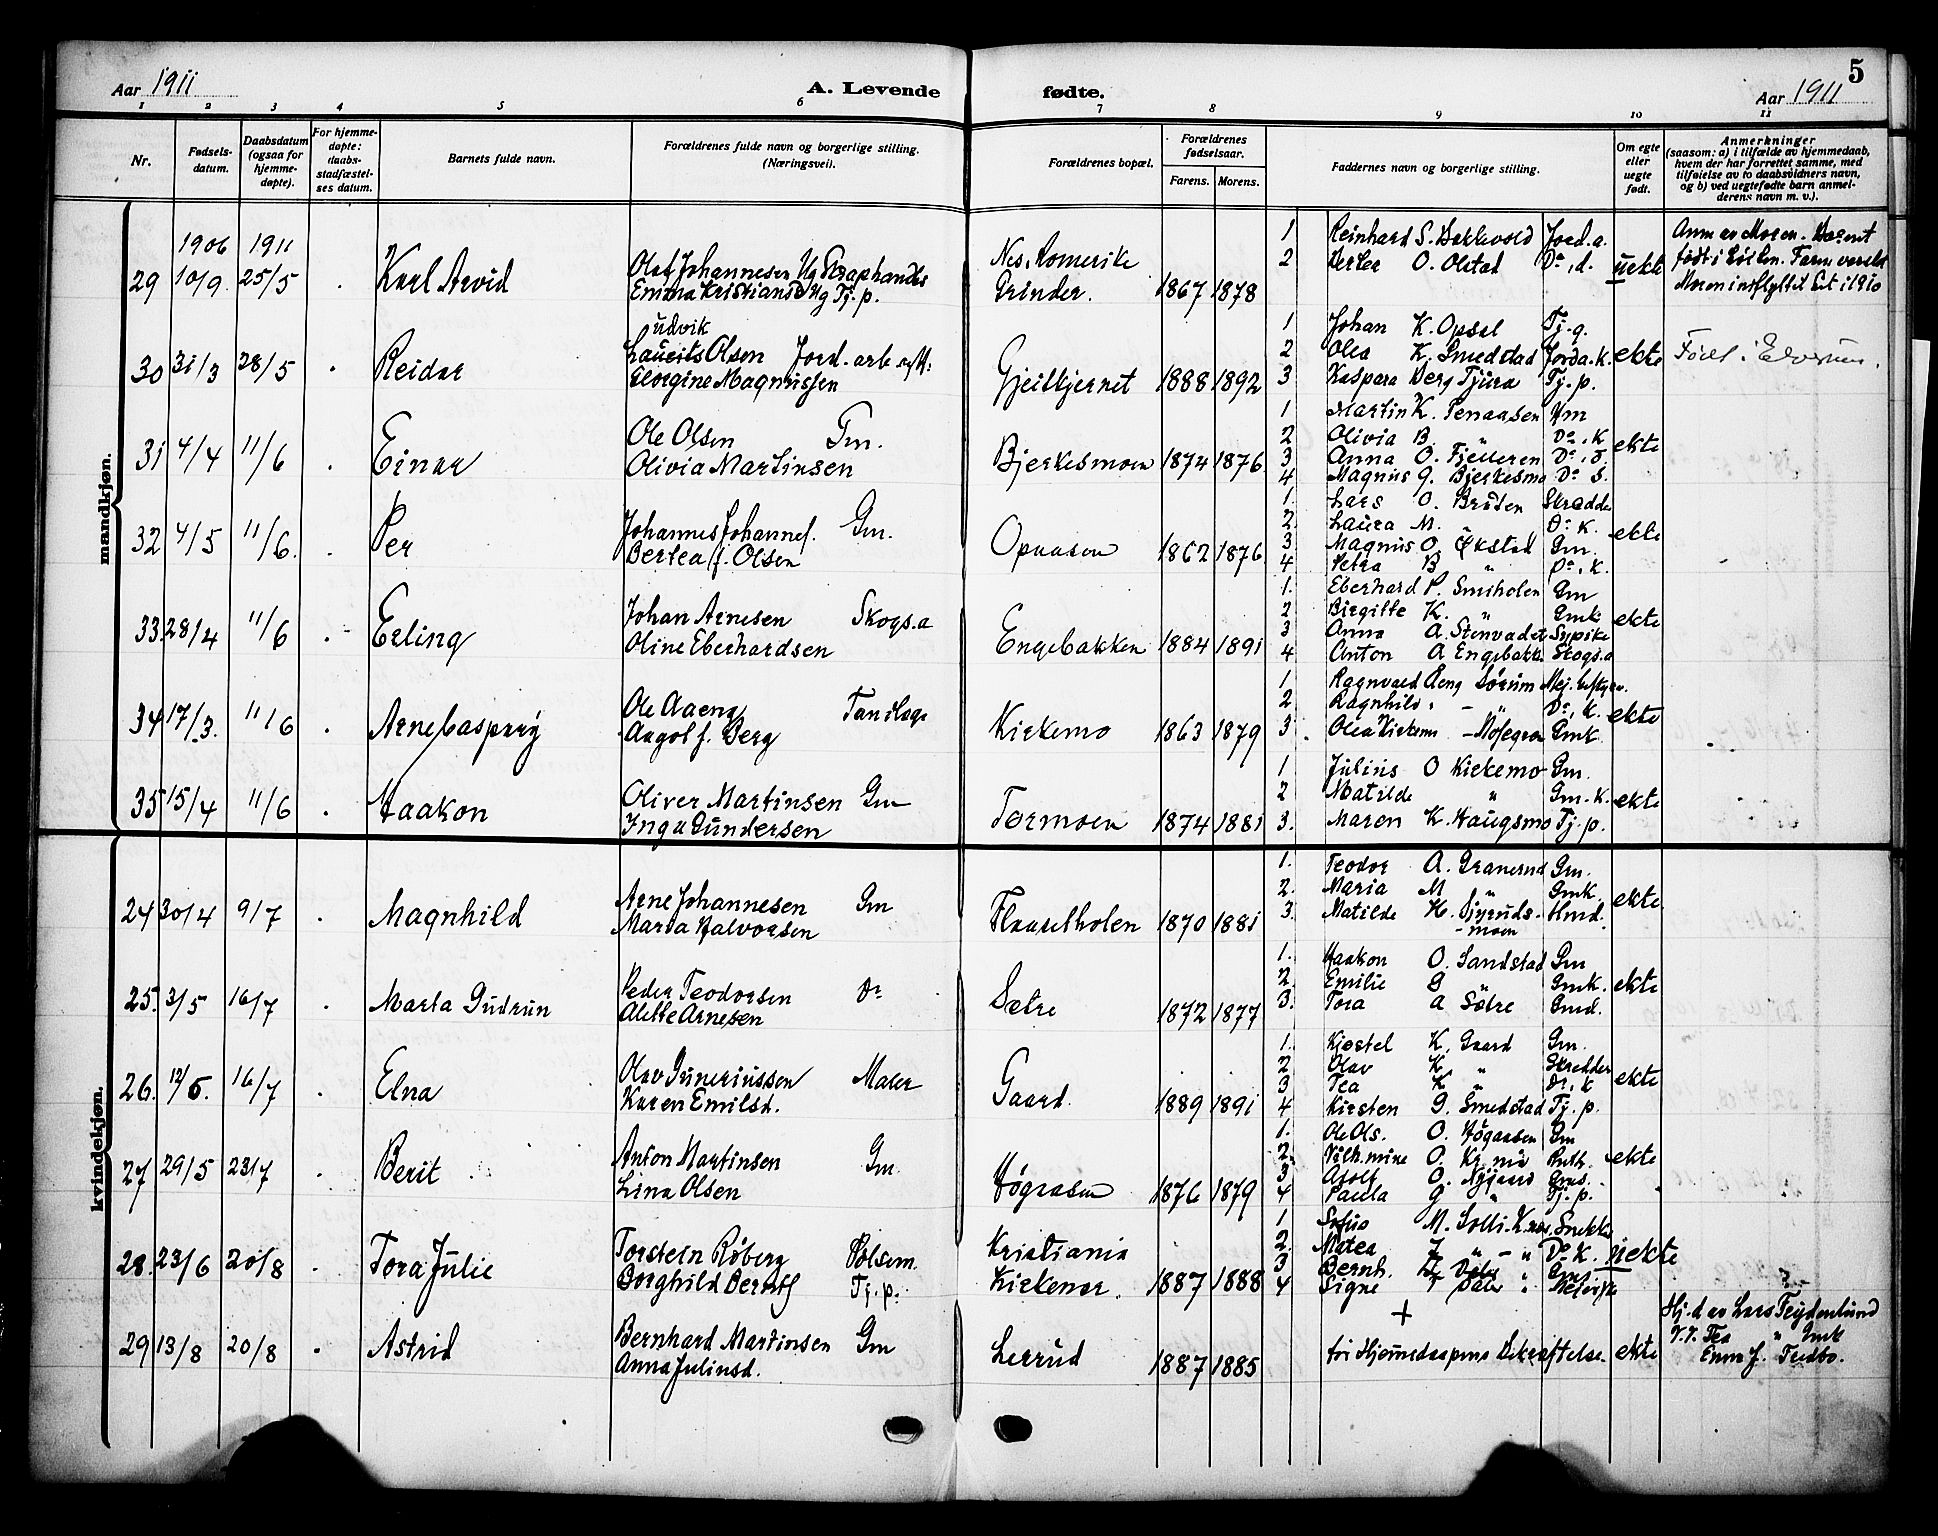 Aar 1911
A. Levende fødte.
Aar 1911
5
1 2 3 4 5 6 7 8 9 10 11
Nr.
Fødsels-datum.
Daabsdatum (ogsaa for hjemme-døpte).
For hjemme-døpte: daabs-stadfæstel-ses datum.
Barnets fulde navn.
Forældrenes fulde navn og borgerlige stilling. (Næringsvei).
Forældrenes bopæl.
Forældrenes fødselsaar.
Farens. Morens.
Faddernes navn og borgerlige stilling.
Om egte eller uegte født.
Anmerkninger
(saasom: a) i tilfælde av hjemmedaab,
hvem der har forrettet samme, med
tilføielse av to daabsvidners navn,
og b) ved uegtefødte barn anmel-
derens navn m. v.).
mandkjøn.
1906 1911
29 10/9 25/5 Karl Arvid
Olaf Johannesen Ug
Emma Kristiansd Ug Tj. p.
Nes, Romerike
Grinder. 1867 1878
1 Reinhard S. Bakkevold Jord.a.
2 Bertea O. Olstad Do. d.
uekte
Anm av Moren. Barnet
født i
Moren indflyttet hit i 1910
30 31/3 28/5 Reidar
Ludvik
Laurits Olsen Jord. arb
Georgine Magnussen
Gjeitkjernet 1888 1892
1 Johan K. Opsal Tj. g.
2 Olea K. Smedstad Jorda. K.
3 Kaspara Berg Tjura Tj. p.
ekte
Født i Elverum.
31 4/4 11/6 Einar
Ole Olsen Gm.
Olivia Martinsen
Bjerkesmoen 1874 1876
1 Martin K. Tenaasen Gm
2 Olivia B. " Do. K
3 Anna O. Fjelleren Do. d.
4 Magnus G. Bjerkesmo Do S.
ekte
32 4/5 11/6. Per
Johannes Johannes. Gm.
Bertea J. Olsen
Opaasen 1862 1876
1. Lars O. Bråten Skrædder
2. Laura M. " Do K.
3 Magnus O. Økstad Gm.
4 Petra B " Do. K.
ekte
33 28/4 11/6 Erling
Johan Arnesen Skogs.a
Oline Eberhardsen
Engebakken 1884 1891
1. Eberhard P. Smiholen Gm
2 Birgitte K. " Gmk
3 Anna A. Stenvadet Sypike
4 Anton A Engebakk. Skogs.a
ekte
34 17/3. 11/6 Arne Casprøy
Ole Aaeng Tandlæge
Aagot J. Berg
Kirkemo 1863 1879
1 Ragnvald Aeng Sørum
2 Ragnhild " Do. K.
3 Olea Kirkemo Gmk.
ekte
35 15/4 11/6 Haakon
Oliver Martinsen Gm
Inga Gundersen
Tormoen 1874 1881
1 Julius O Kirkemo Gm.
2 Matilde " Gm. K.
3. Maren K. Haugsmo Tj. p.
ekte
kvindekjøn.
24 30/4 9/7 Magnhild
Arne Johannesen Gm
Marta Halvorsen
Flaaselholen 1870 1881
1. Teodor A. Granerud Gm.
2. Maria M " Gmk.
3. Matilde H. Djyruds-moen Hmd.
ekte
25. 3/5 16/7 Marta Gudrun
Peder Teodorsen Do
Alette Arnesen
Sætre 1872 1877
1. Haakon O. Sandstad Gm
2. Emilie G " Gmk.
3. Tora A Sætre Gmd.
ekte
26. 12/5. 16/7 Elna
Olav Guneriussen Maler
Karen Emilsd.
Gaard 1889 1891
1. Kjostel K. Gaard Gm.
2 Olav K. " Skredder
3 Tea K " Do. K
4 Kirsten G. Smedstad Tj. p.
ekte
27 29/5 23/7 Berit
Anton Martinsen Gm
Lina Olsen
Høgaasen 1876 1879
1. Ole Ols. O. Høgaasen Gm
2. Vilh.mine O.
3 Adolf O. Nygaard Gms.
4 Paula G " Tj. p.
ekte
28. 23/6 20/8 Tora Julie
Torstein Røberg Pølsem.
Borghild Berntf Tj. p.
Kristiania
Kirkener. 1887 1888
1 Sofus M. Solli Snekker
2. Matea " Do K.
3 Bernh. Gms
4 Signe
uekte
29 13/8 20/8 Astrid
Bernhard Martinsen Gm
Anna Juliusd.
Lerrud 1887 1885
+
før Hjemmedaapens bekræftelse.
ekte
Hj. d av Lars Frydenlund
V. v. Tea " Gmk